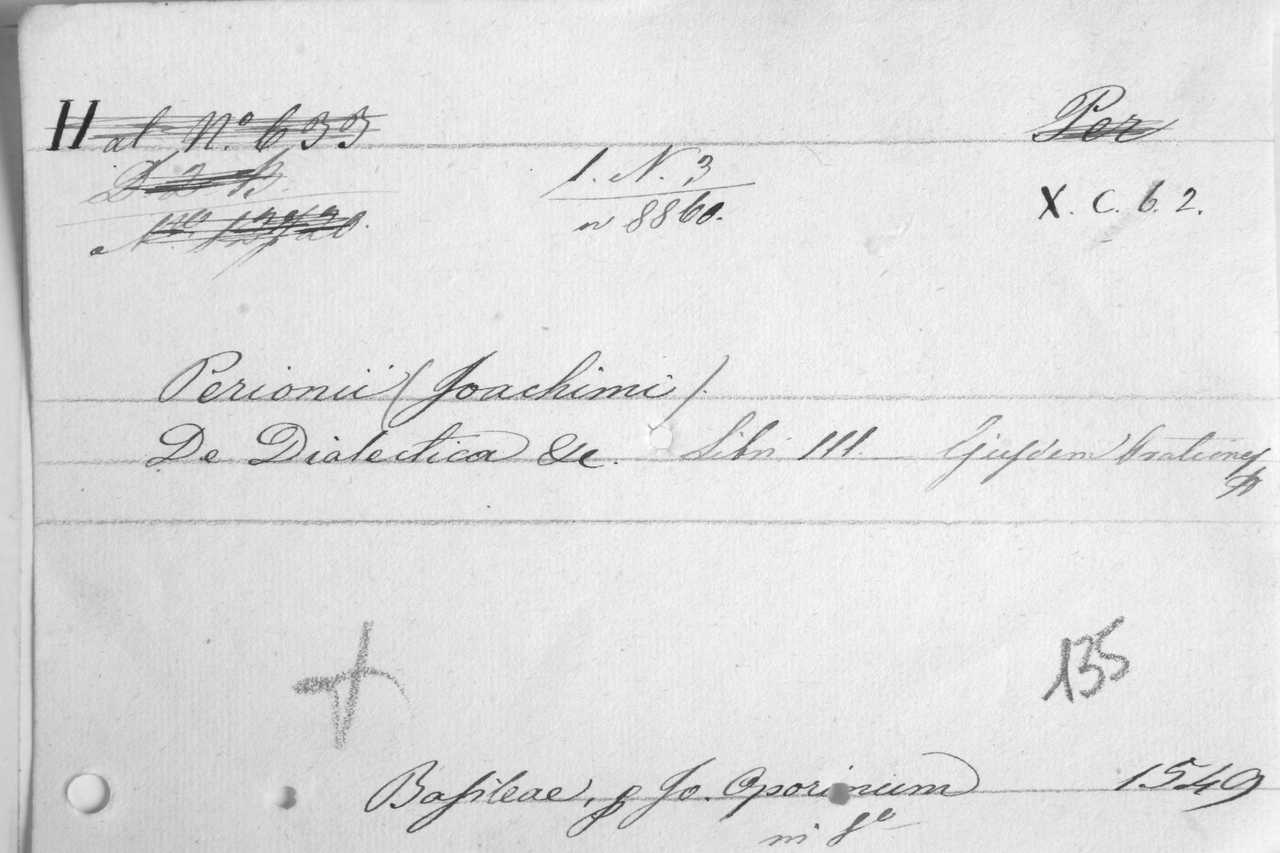 Hal N.o 633
Per
1. N. 3
X. C. 6. 2.
n 8860.
Perionii (Joachimi)
De Dialectica &c. Libri III. Ejusdem Orationes
135
Basileae, p Jo. Oporinum 1549
in 8o